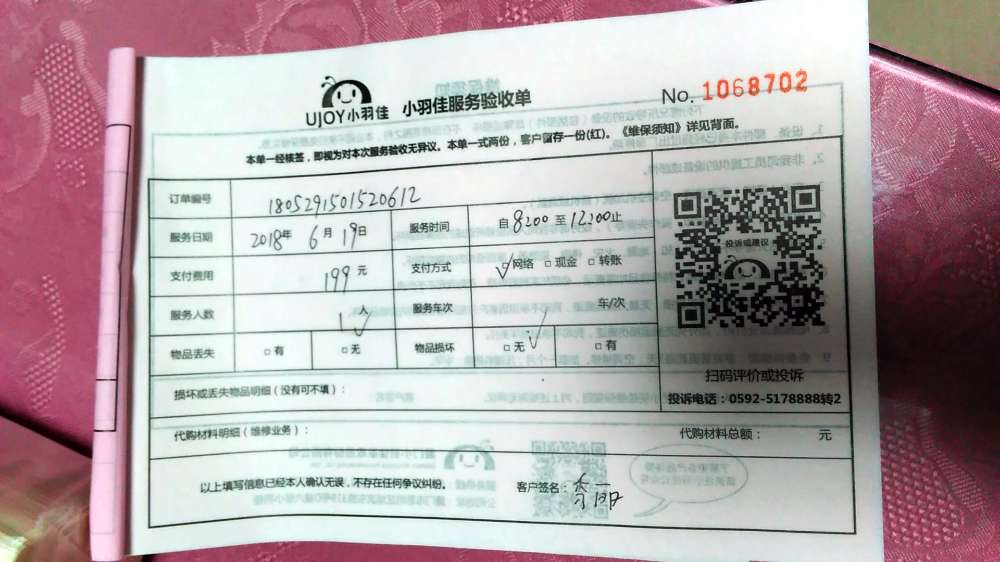 UJOY小羽佳 小羽佳服务验收单 No. 1068702
本单一经核签，即视为对本次服务验收无异议。本单一式两份，客户留存一份(红)。《维保须知》详见背面。
订单编号 180529150152​0612
服务日期 2018年 6月 19日 服务时间 自8:00至12:00止
支付费用 199元 支付方式 ☑网络 □现金 □转账
服务人数 1人 服务车次 车/次
物品丢失 □有 □无 物品损坏 □无 □有
投诉或建议
扫码评价或投诉
投诉电话：0592-5178888转2
损坏或丢失物品明细（没有可不填）：
代购材料明细（维修业务）： 代购材料总额： 元
以上填写信息已经本人确认无误，不存在任何争议纠纷。 客户签名：